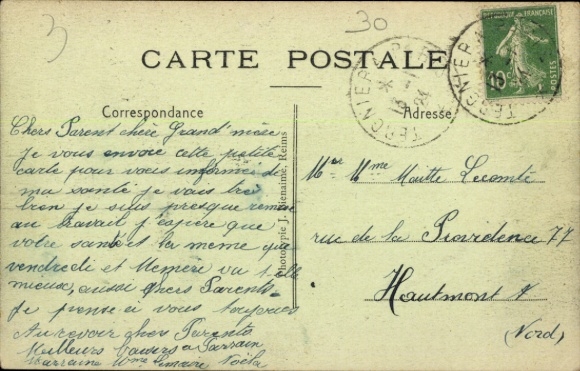 3
30
CARTE POSTALE
Correspondance
Adresse
TERGNIER
TERGNIER
FRANÇAISE
10
POSTES
Chers Parent chère Grand'mère
Je vous envoie cette petite
carte pour vous informer de
ma santé je vais très
bien je suis presque remise
au travail j'espère que
votre santé est la meme que
vendredi et Memère va t-elle
mieux, aussi chers Parents.
Je pense à vous toujours
Au revoir chers Parents
Meilleurs baisers a Parrain
Marraine
Photographie J. Bienaimé, Reims
Mr Mme Lecomte
rue de la Providence 77
Hautmont
(Nord)